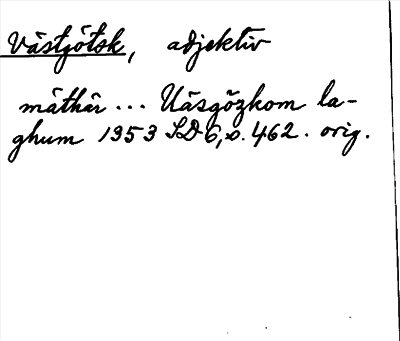 Västgötsk, adjektiv
mäthär ... Uäsgözkom la-
ghum 1353 SD 6, s. 462. orig.